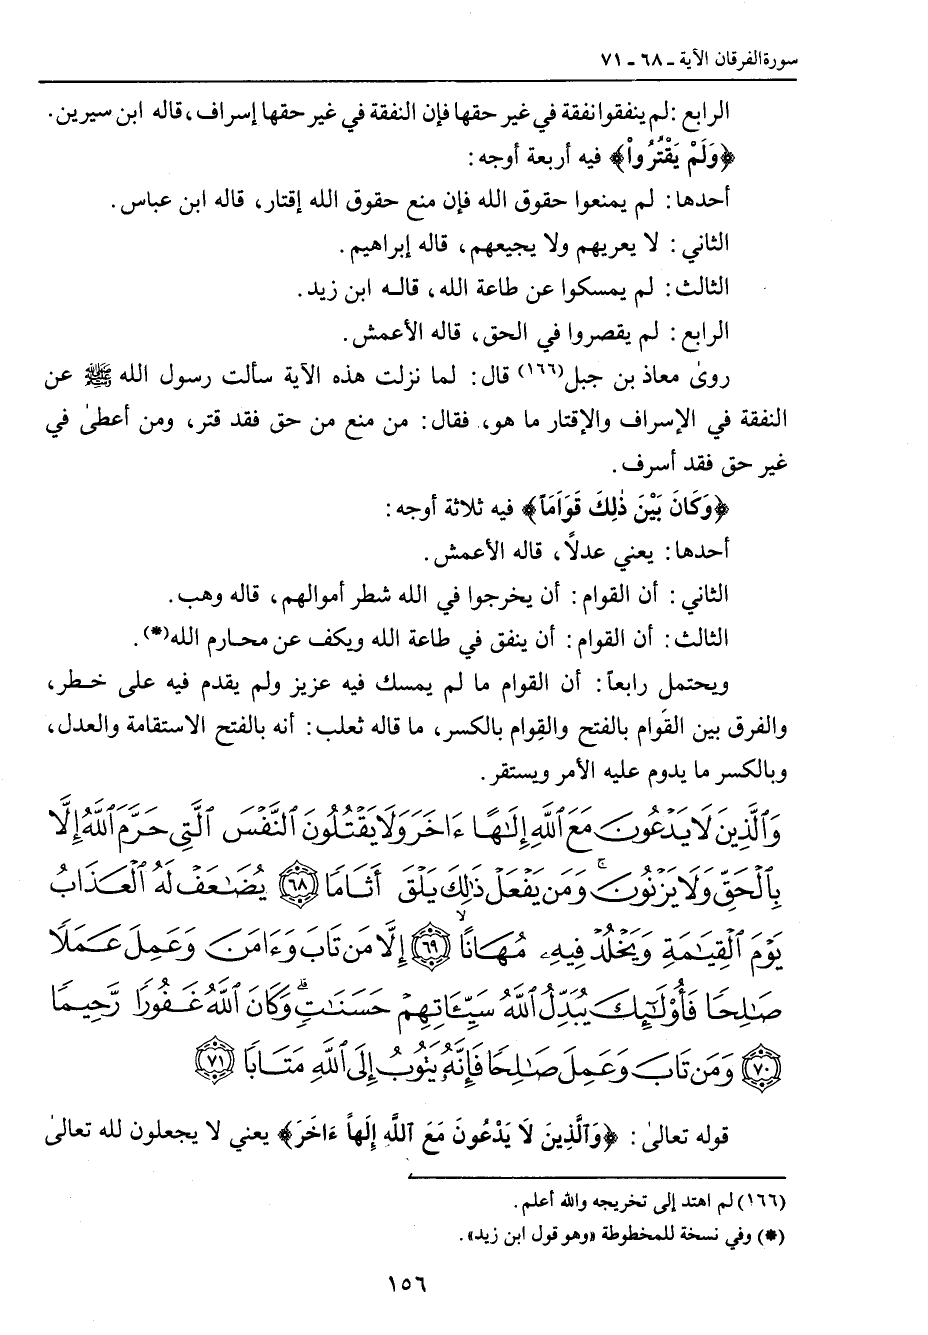 سورة الفرقان الآية ـ ٦٨ ـ ٧١
الرابع : لم ينفقوا نفقة في غير حقها فإن النفقة في غير حقها إسراف ، قاله ابن سيرين .
﴿وَلَمْ يَقْتُرُواْ﴾ فيه أربعة أوجه :
أحدها : لم يمنعوا حقوق الله فإن منع حقوق الله إقتار ، قاله ابن عباس .
الثاني : لا يعريهم ولا يجيعهم ، قاله إبراهيم .
الثالث : لم يمسكوا عن طاعة الله ، قالـه ابن زيد .
الرابع : لم يقصروا في الحق ، قاله الأعمش .
روىٰ معاذ بن جبل(١٦٦) قال : لما نزلت هذه الآية سألت رسول الله ﷺ عن
النفقة في الإسراف والإقتار ما هو ، فقال : من منع من حق فقد قتر ، ومن أعطىٰ في
غير حق فقد أسرف .
﴿وَكَانَ بَيْنَ ذٰلِكَ قَوَاماً﴾ فيه ثلاثة أوجه :
أحدها : يعني عدلاً ، قاله الأعمش .
الثاني : أن القوام : أن يخرجوا في الله شطر أموالهم ، قاله وهب .
الثالث : أن القوام : أن ينفق في طاعة الله ويكف عن محارم الله(*) .
ويحتمل رابعاً : أن القوام ما لم يمسك فيه عزيز ولم يقدم فيه على خـطر ،
والفرق بين القَوام بالفتح والقِوام بالكسر ، ما قاله ثعلب : أنه بالفتح الاستقامة والعدل ،
وبالكسر ما يدوم عليه الأمر ويستقر .
وَٱلَّذِينَ لَا يَدْعُونَ مَعَ ٱللَّهِ إِلَـٰهًا ءَاخَرَ وَلَا يَقْتُلُونَ ٱلنَّفْسَ ٱلَّتِى حَرَّمَ ٱللَّهُ إِلَّا
بِٱلْحَقِّ وَلَا يَزْنُونَ ۚ وَمَن يَفْعَلْ ذَٰلِكَ يَلْقَ أَثَامًا ٦٨ يُضَـٰعَفْ لَهُ ٱلْعَذَابُ
يَوْمَ ٱلْقِيَـٰمَةِ وَيَخْلُدْ فِيهِۦ مُهَانًا ٦٩ إِلَّا مَن تَابَ وَءَامَنَ وَعَمِلَ عَمَلًا
صَـٰلِحًا فَأُوْلَـٰٓئِكَ يُبَدِّلُ ٱللَّهُ سَيِّـَٔاتِهِمْ حَسَنَـٰتٍ ۗ وَكَانَ ٱللَّهُ غَفُورًا رَّحِيمًا
٧٠ وَمَن تَابَ وَعَمِلَ صَـٰلِحًا فَإِنَّهُۥ يَتُوبُ إِلَى ٱللَّهِ مَتَابًا ٧١
قوله تعالىٰ : ﴿وَٱلَّذِينَ لَا يَدْعُونَ مَعَ ٱللَّهِ إِلَهاً ءَاخَرَ﴾ يعني لا يجعلون لله تعالىٰ
(١٦٦) لم اهتد إلى تخريجه والله أعلم .
(*) وفي نسخة للمخطوطة «وهو قول ابن زيد» .
١٥٦